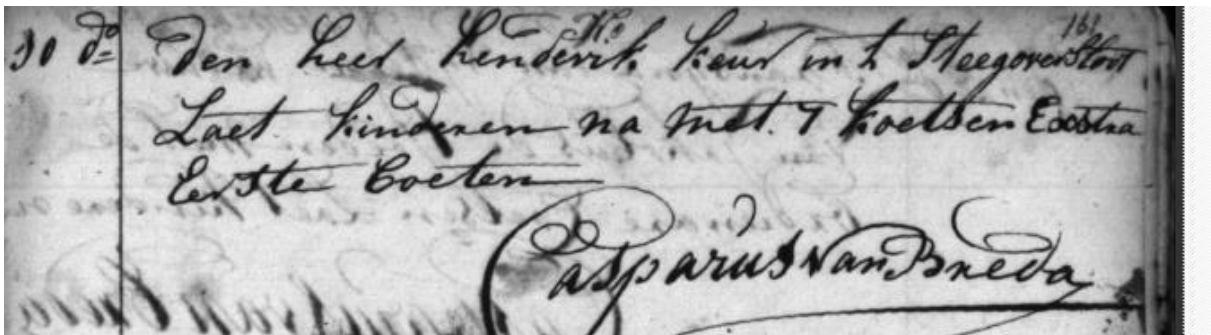 161
30 do den heer Henderik Keur in t Steegoversloot
Laet kinderen na met 7 koetsen Exstra
Eerste Boeten
Casparus van Breda